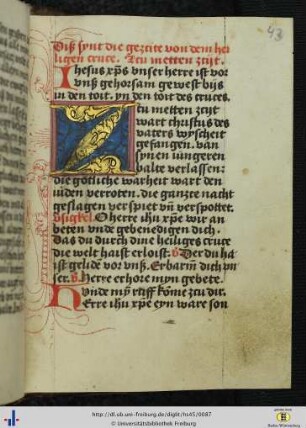 43
Diß synt die gezcite von dem hei
ligen cruce. Zcu metten zcijt.
Ihesus xp̄s vnser herre ist vor
vnß gehorsam gewest bijs
in den toit. yn den toit des cruces.
Zcu metten zcijt
wart christus des
vaters wyscheit
gefangen. van
synen iungeren
balte verlassen:
die götliche warheit wart den
iuden verroten. die gancze nacht
geslagen verspiet vn̄ verspottet.
v̄sigkel. O herre ihū xp̄e wir an
beten vnde gebenedigen dich.
Das du durch dine heiliges cruce
die welt haist erloist. V̄. Der du ha
ist gelide vor vnß. Erbarm̄ dich vn
ser. V̄. Herre erhore myn gebete.
Vnde mȳ rüff kōme zcu dir.
Herre ihū xp̄e eyn ware son
http://dl.ub.uni-freiburg.de/diglit/hs45/0087
© Universitätsbibliothek Freiburg